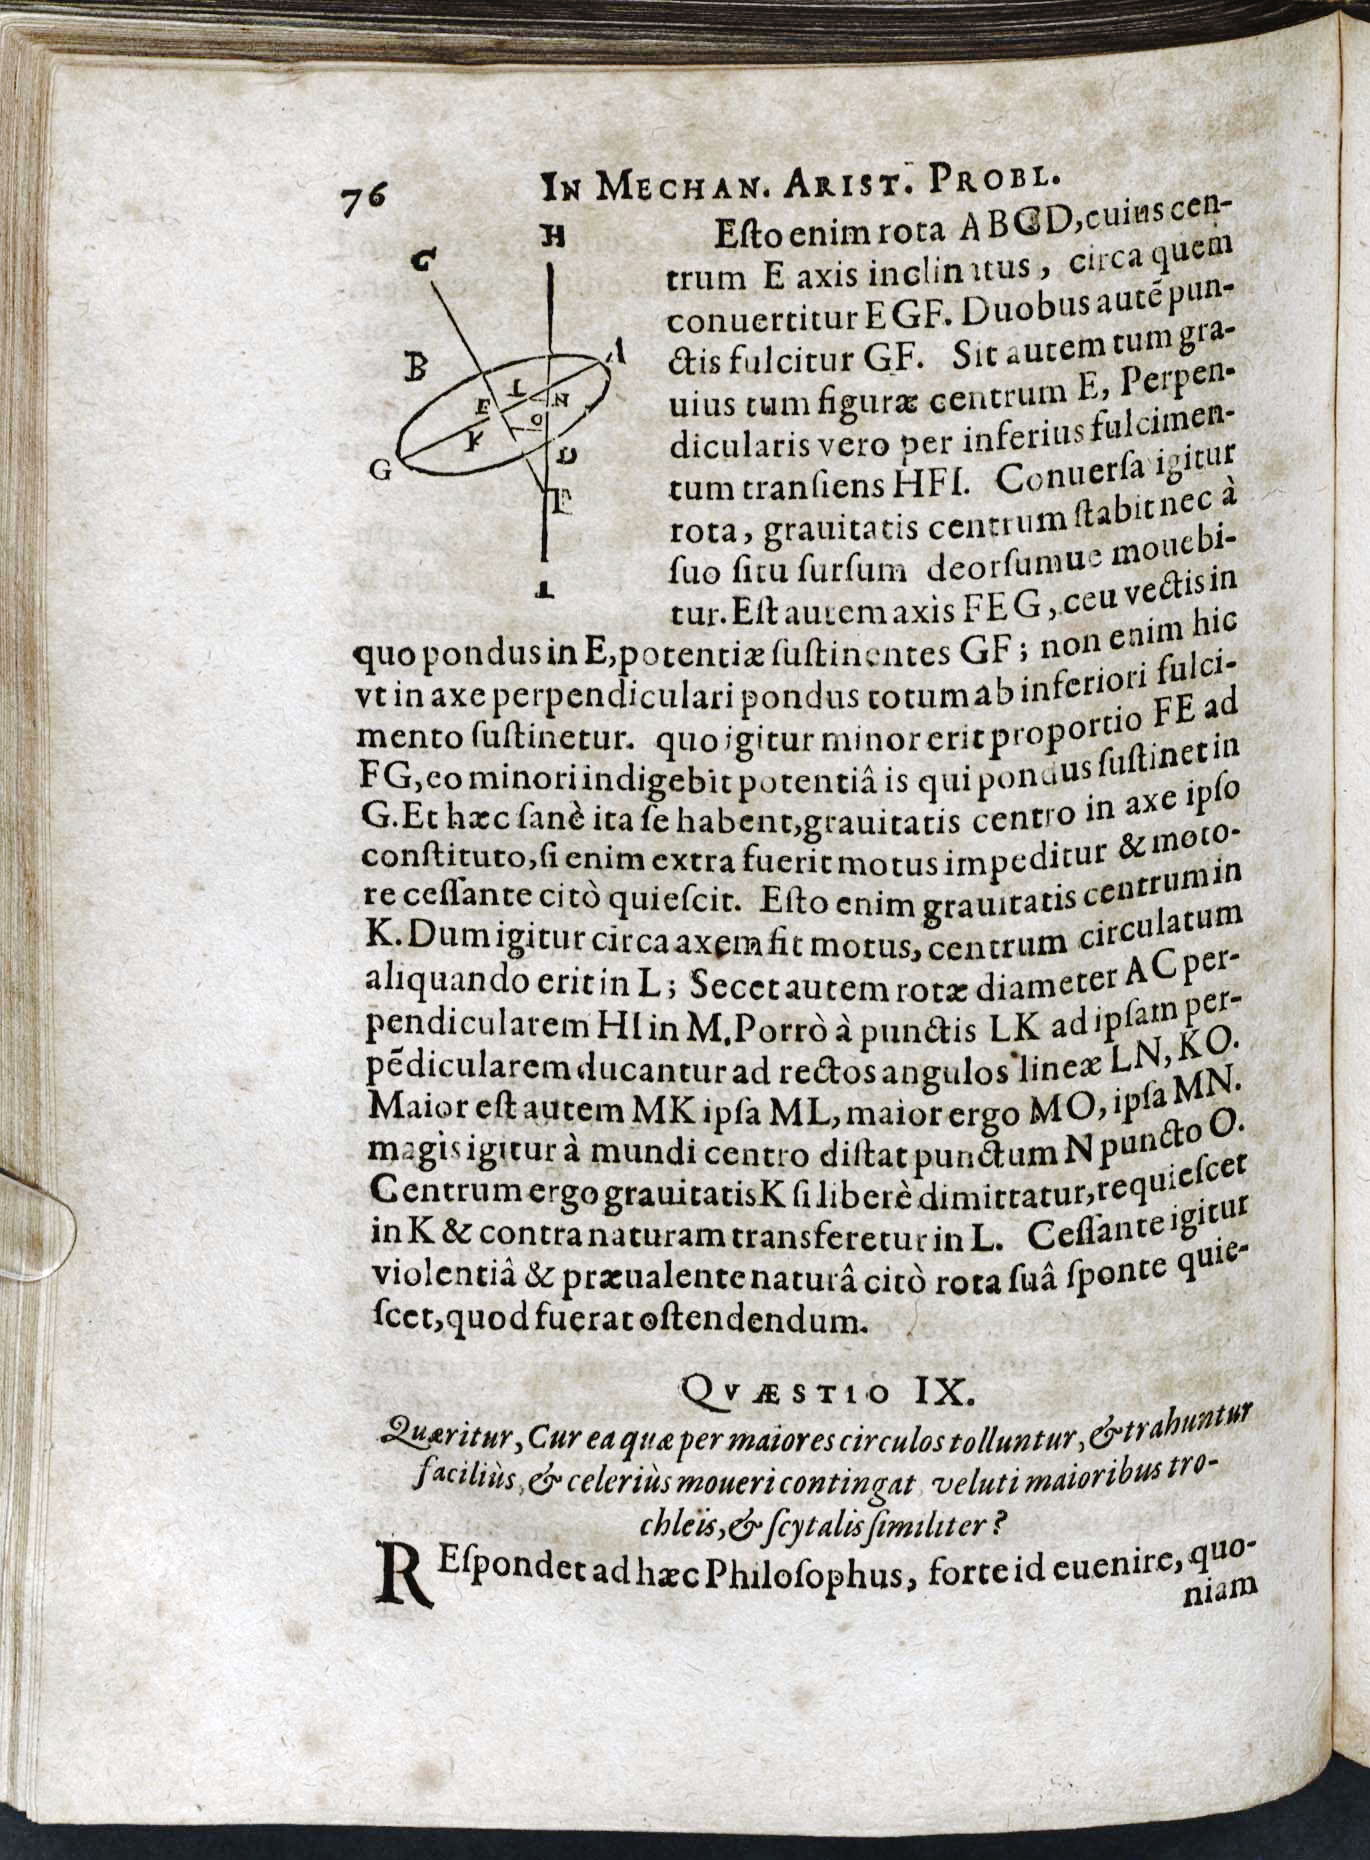 76 IN MECHAN. ARIST. PROBL.
H
C
B
A
L
E
N
O
K
G
D
F
I
Eſto enim rota ABCD, cuius cen-
trum E axis inclinatus, circa quem
conuertitur EGF. Duobus autẽ pun-
ctis fulcitur GF. Sit autem tum gra-
uius tum figuræ centrum E, Perpen-
dicularis vero per inferius fulcimen-
tum tranſiens HFI. Conuerſa igitur
rota, grauitatis centrum ſtabit nec à
ſuo ſitu ſurſum deorſumue mouebi-
tur. Eſt autem axis FEG, ceu vectis in
quo pondus in E, potentiæ ſuſtinentes GF; non enim hic
vt in axe perpendiculari pondus totum ab inferiori fulci-
mento ſuſtinetur. quo igitur minor erit proportio FE ad
FG, eo minori indigebit potentiâ is qui pondus ſuſtinet in
G. Et hæc ſanè ita ſe habent, grauitatis centro in axe ipſo
conſtituto, ſi enim extra fuerit motus impeditur & moto-
re ceſſante citò quieſcit. Eſto enim grauitatis centrum in
K. Dum igitur circa axem fit motus, centrum circulatum
aliquando erit in L; Secet autem rotæ diameter AC per-
pendicularem HI in M. Porrò à punctis LK ad ipſam per-
pẽdicularem ducantur ad rectos angulos lineæ LN, KO.
Maior eſt autem MK ipſa ML, maior ergo MO, ipſa MN.
magis igitur à mundi centro diſtat punctum N puncto O.
Centrum ergo grauitatis K ſi liberè dimittatur, requieſcet
in K & contra naturam transferetur in L. Ceſſante igitur
violentiâ & præualente naturâ citò rota ſuâ ſponte quie-
ſcet, quod fuerat oſtendendum.
QVÆSTIO IX.
Quæritur, Cur ea quæ per maiores circulos tolluntur, & trahuntur
faciliùs, & celeriùs moueri contingat veluti maioribus tro-
chleis, & ſcytalis ſimiliter?
REſpondet ad hæc Philoſophus, forte id euenire, quo-
niam